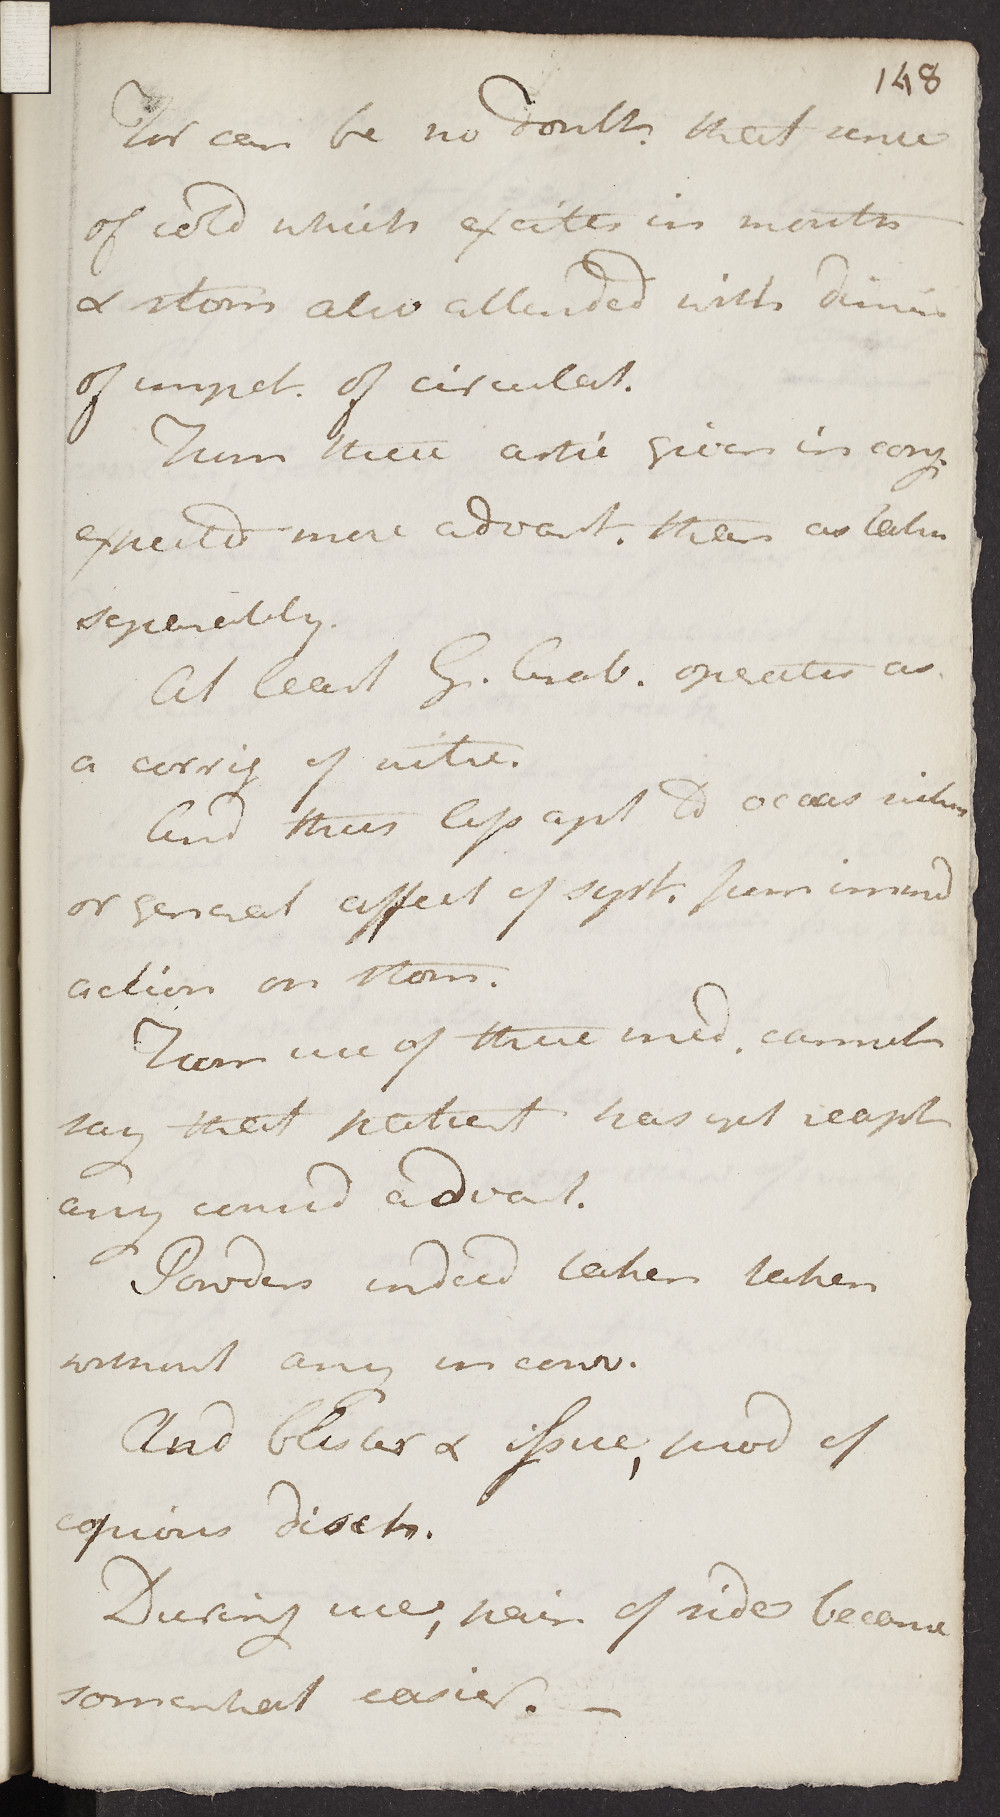 148
For can be no doubt that sense
of cold which excites in mouth
& stom also attended with dimin
of impet. of circulat.
From these artic given in conj.
expected more advant. than as taken
separately.
At least G. Arab. operates as
a corrig of nitre.
And thus less apt to occas
or general affect of syst. from immed
action on stom.
From use of these med. cannot
say that patient has yet reapt
any consid advant.
Powders indeed taken taken
without any inconv.
And blister & issue, prod of
copious disch.
During use, pain of side became
somewhat easier. —